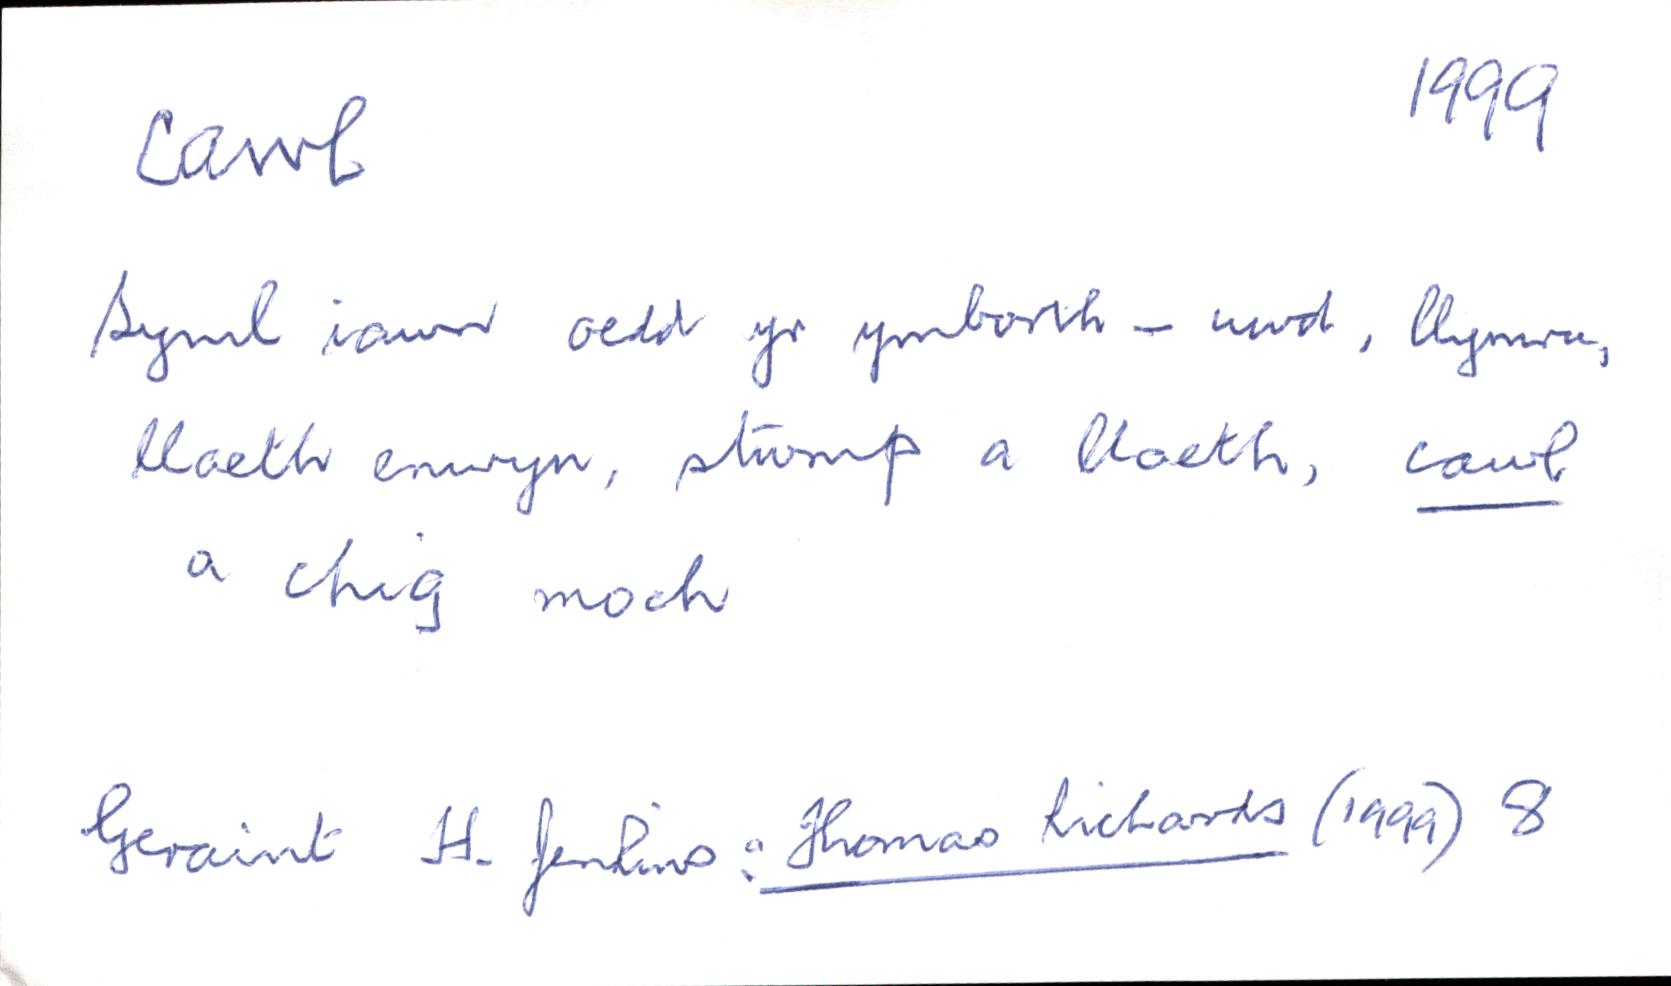 cawl 1999
Syml iawn oedd yr ymborth – uwd, llymru,
llaeth enwyn, stwmp a llaeth, cawl
a chig moch
Geraint H. Jenkins: Thomas Richards (1999) 8